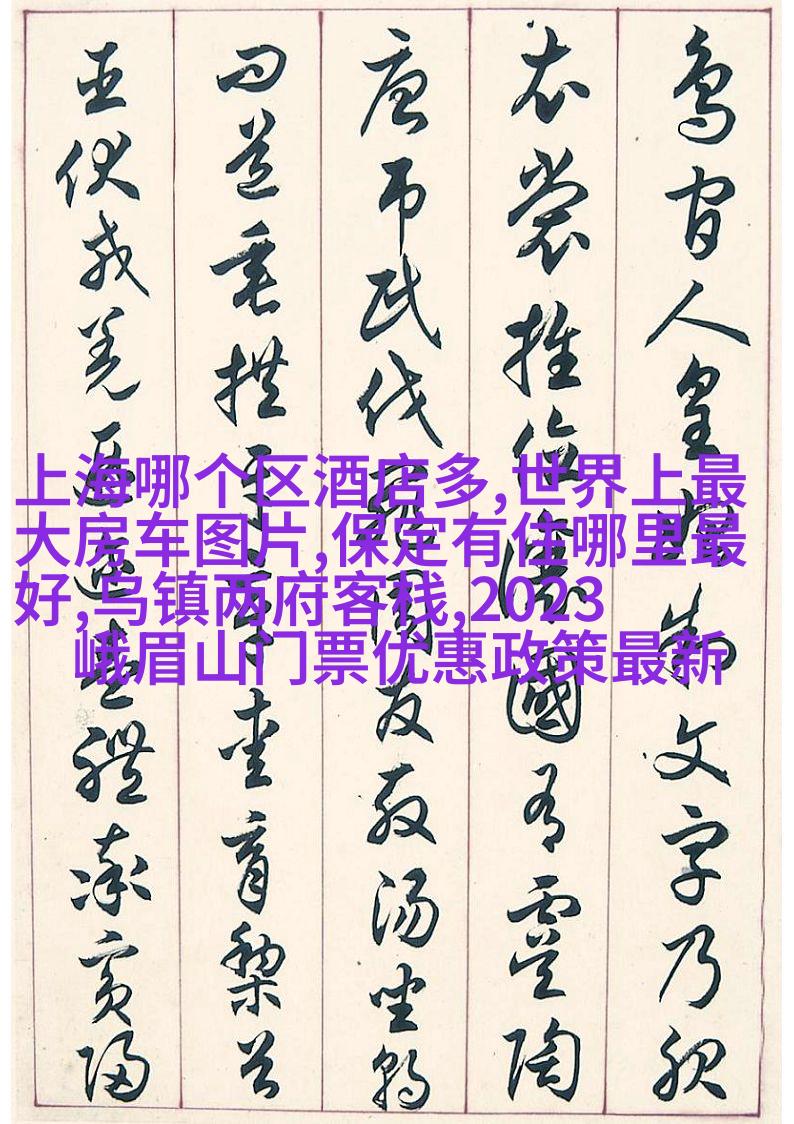 鸟官人皇始制文字乃服
衣裳推位让國有虞陶
唐吊民伐罪周发殷汤坐朝
问道垂拱平章爱育黎首
臣伏戎羌遐迩壹體率宾归
上海哪个区酒店多,世界上最
大房车图片,保定有住哪里最
好,乌镇两府客栈,2023
峨眉山门票优惠政策最新